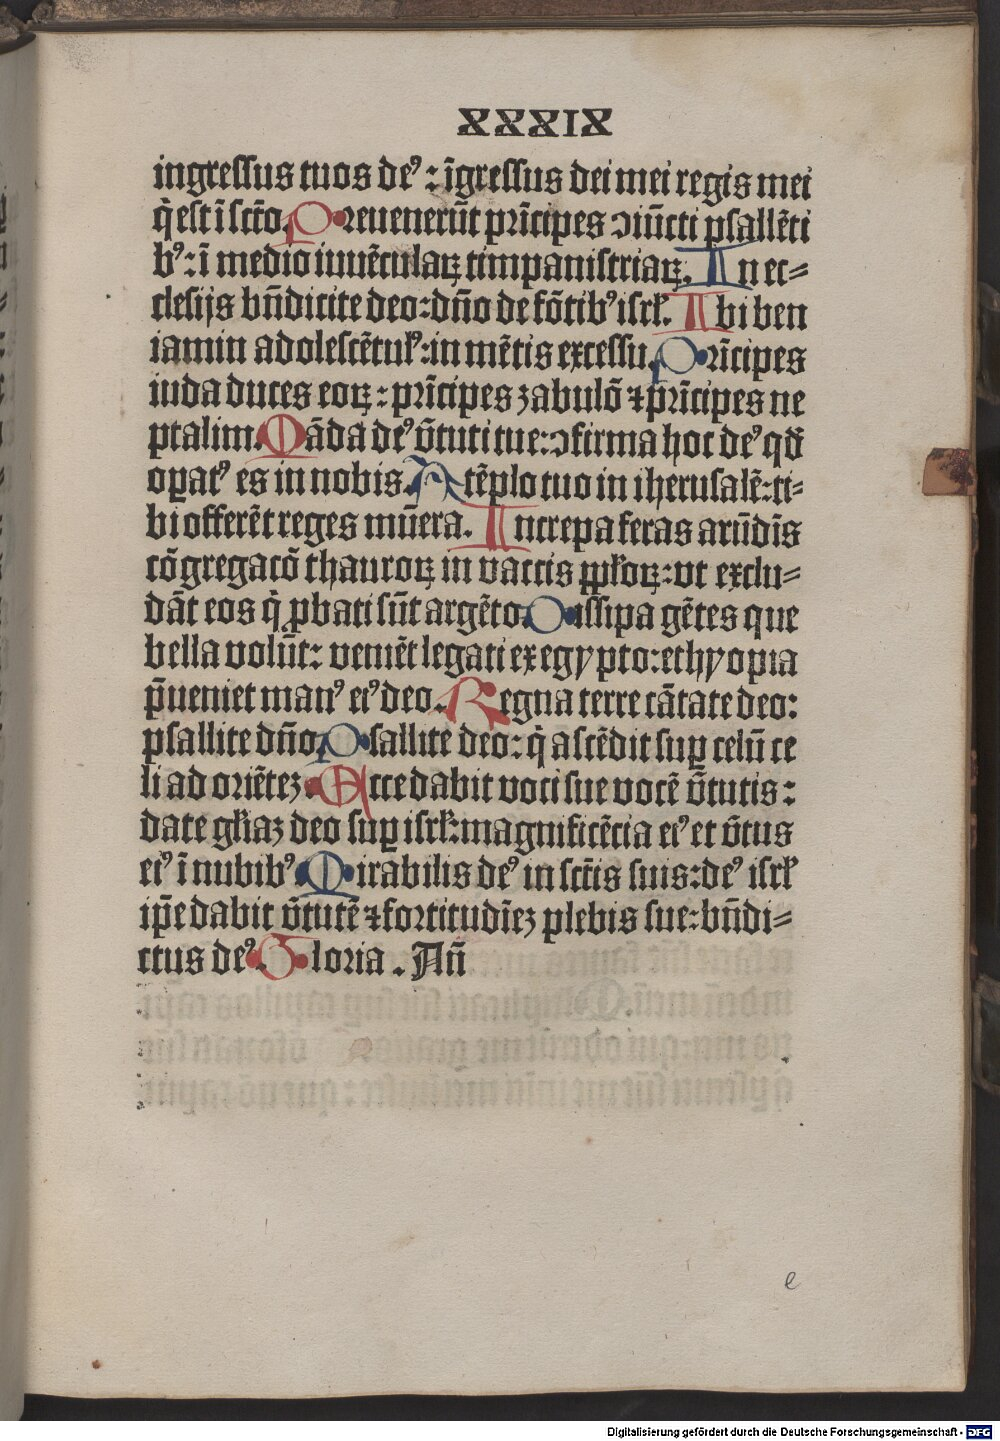 XXXIX
ingressus tuos deꝰ: īgressus dei mei regis mei
q̄ est ī scto. Preuenerūt prīcipes ↄiūcti psallēti
bꝰ: ī medio iuuēculaꝝ timpanistriaꝝ. In ec⸗
clesijs bn̄dicite deo: dn̄o de fōtibꝰ isrł. Ibi ben
iamin adolescētulꝰ: in mētis excessu. Prīcipes
iuda duces eoꝝ: prīcipes zabulō ⁊ prīcipes ne
ptalim. Māda deꝰ v̄tuti tue: ↄfirma hoc deꝰ qd̄
oꝑatꝰ es in nobis. A tēplo tuo in iherusalē: ti⸗
bi offerēt reges mūera. Increpa feras arūdīs
cōgregacō thauroꝝ in vaccis ppłoꝝ: vt exclu⸗
dāt eos q̄ ꝓbati sūt argēto. Dissipa gētes que
bella volūt: veniēt legati ex egypto: ethyopia
p̄ueniet manꝰ eiꝰ deo. Regna terre cātate deo:
psallite dn̄o. Psallite deo: q̄ ascēdit suꝑ celū ce
li ad oriētez. Ecce dabit voci sue vocē v̄tutis:
date głiaz deo suꝑ isrł: magnificēcia eiꝰ et v̄tus
eiꝰ ī nubibꝰ. Mirabilis deꝰ in sctīs suis: deꝰ isrł
ip̄e dabit v̄tutē ⁊ fortitudīez plebis sue: bn̄di⸗
ctus deꝰ. Gloria. An̄
e
Digitalisierung gefördert durch die Deutsche Forschungsgemeinschaft - DFG